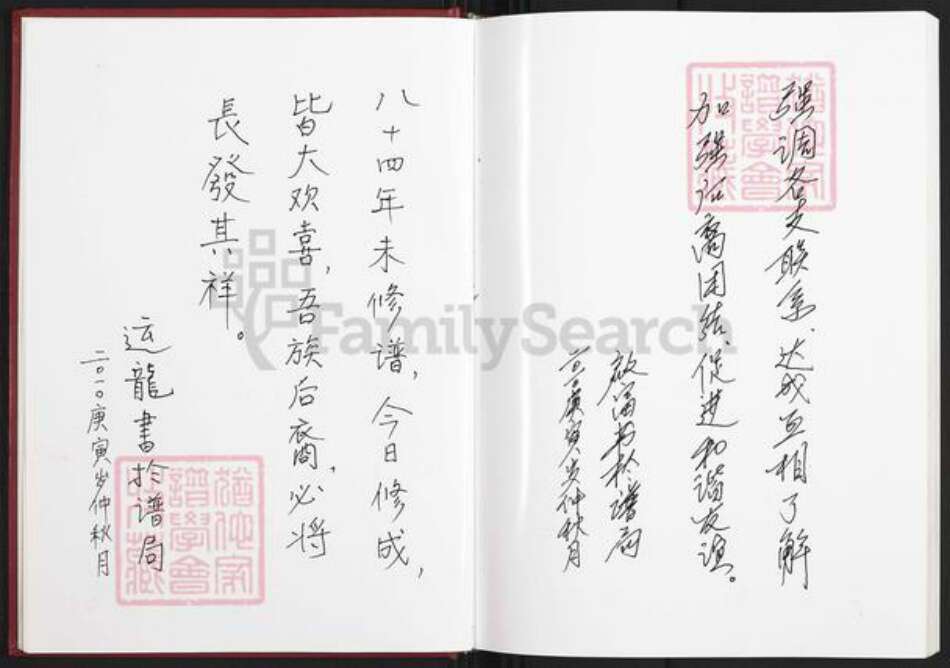 强调各支联系、达成互相了解
加强征裔团结促进和谐友谊。
书於谱局
二〇一〇庚寅岁仲秋月
八十四年未修谱，今日修成，
皆大欢喜，吾族后裔，必将
長發其祥。
运龍書於谱局
二〇一〇庚寅岁仲秋月
FamilySearch